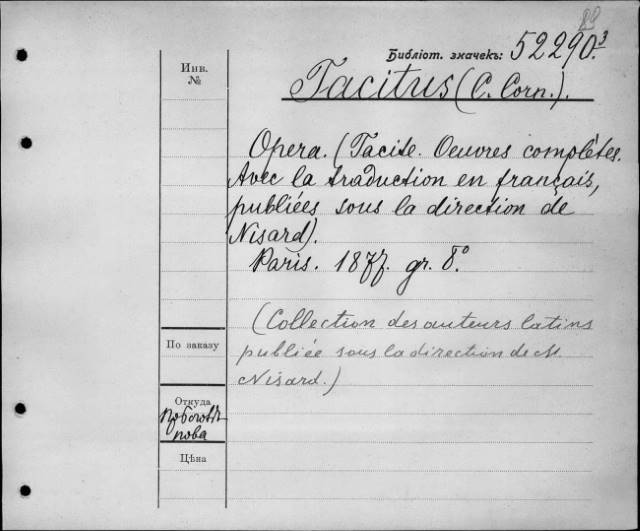 82
Библіот. значекъ: 52290.³
Инв.
№
Tacitus (C. Corn.).
Opera. (Tacite. Oeuvres complètes.
Avec la traduction en français,
publiées sous la direction de
Nisard).
Paris. 1877. gr. 8.°
(Collection des auteurs latins
publiée sous la direction de M
Nisard.)
По заказу
Откуда
Цѣна